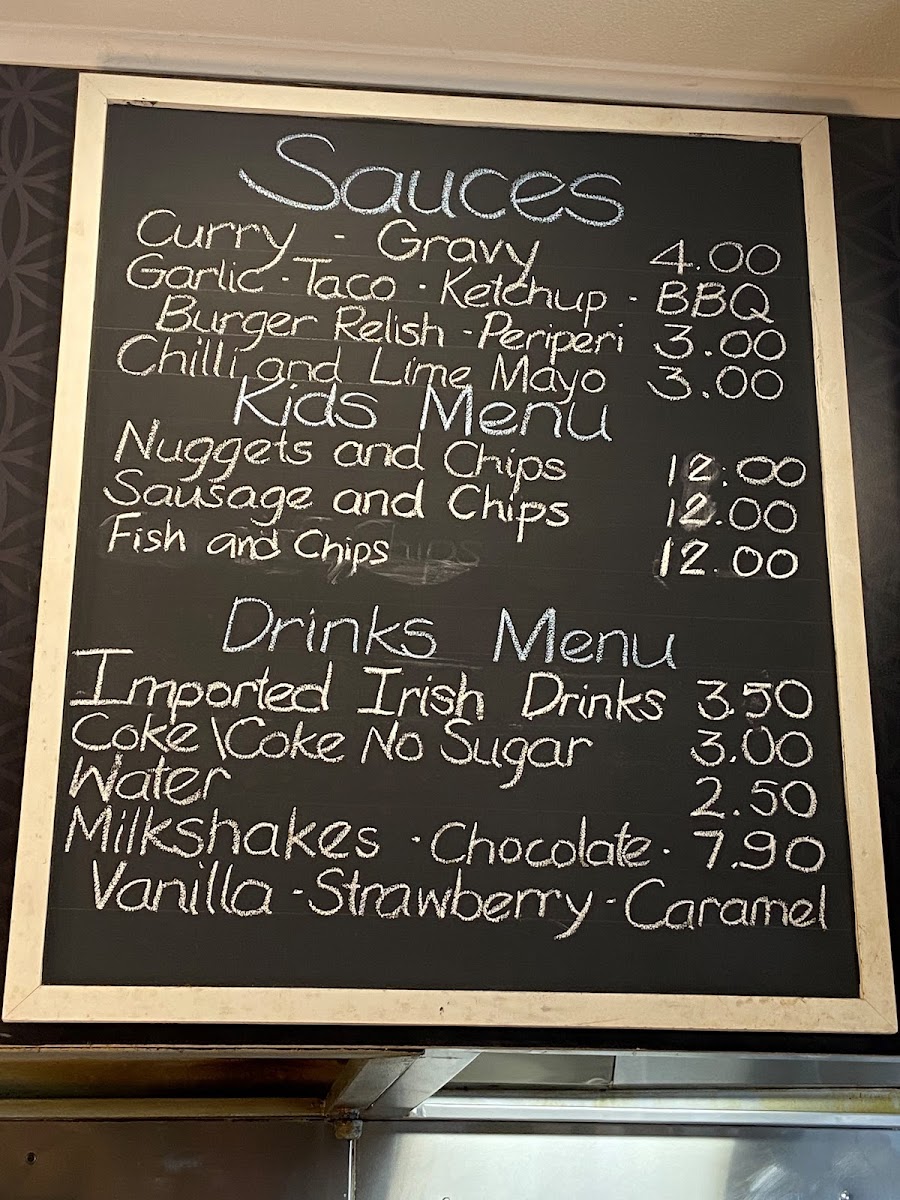 Sauces
Curry - Gravy 4.00
Garlic - Taco - Ketchup - BBQ
Burger Relish - Periperi 3.00
Chilli and Lime Mayo 3.00
Kids Menu
Nuggets and Chips 12.00
Sausage and Chips 12.00
Fish and Chips 12.00
Drinks Menu
Imported Irish Drinks 3.50
Coke\Coke No Sugar 3.00
Water 2.50
Milkshakes - Chocolate - 7.90
Vanilla - Strawberry - Caramel